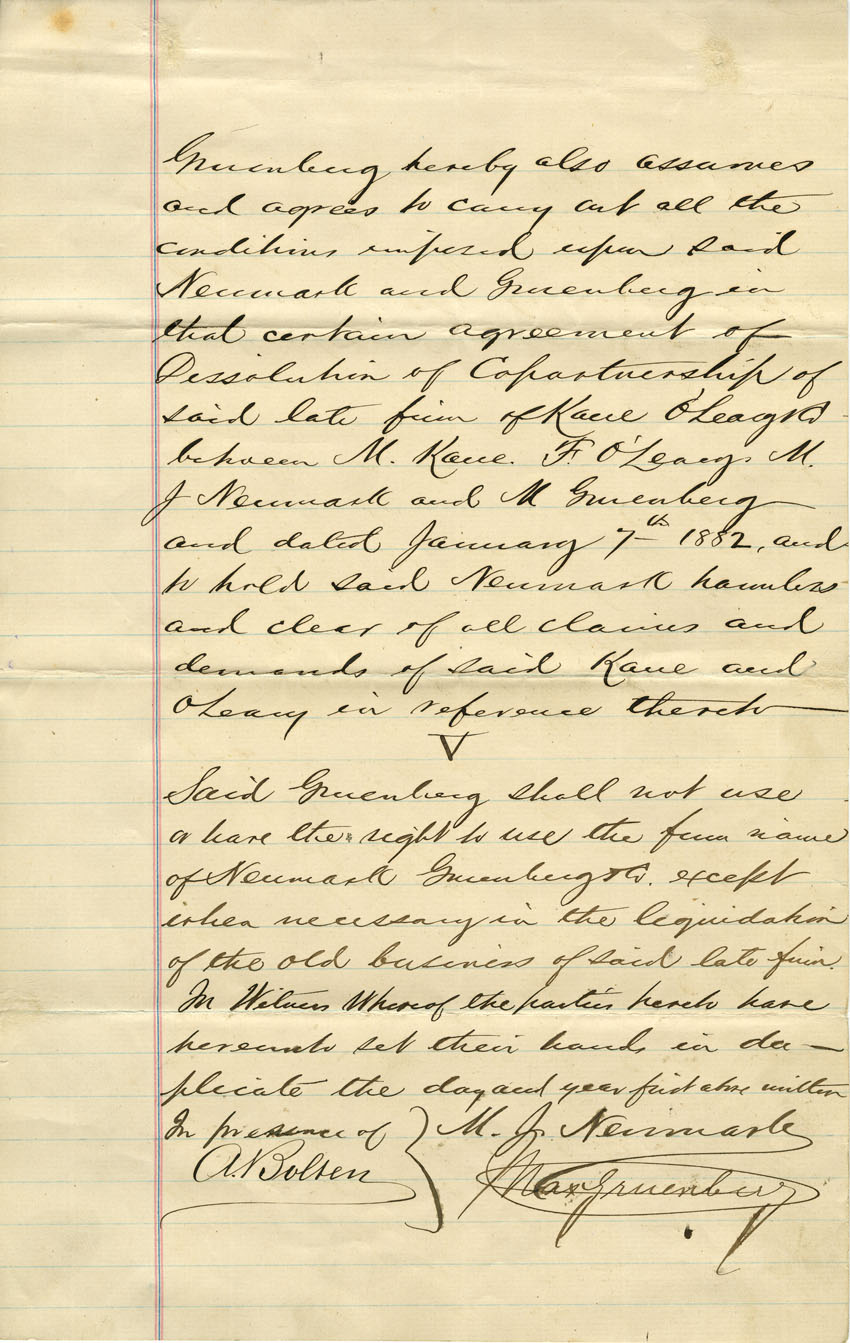 Gruenberg hereby also assumes
and agrees to carry out all the
conditions imposed upon said
Neumark and Gruenberg in
that certain agreement of
Dissolution of Copartnership of
said late firm of Kane O'Leary & Co
between M. Kane. F. O'Leary. M.
J Neumark and M Gruenberg
and dated January 7th 1882, and
to hold said Neumark harmless
and clear of all claims and
demands of said Kane and
O'Leary in reference thereto
Said Gruenberg shall not use
or have the right to use the firm name
of Neumark Gruenberg & Co. except
when necessary in the liquidation
of the old business of said late firm.
In Witness Whereof the parties hereto have
hereunto set their hands in du-
plicate the day and year first above written
In presence of } M. J. Neumark
A. Bolsen Max Gruenberg